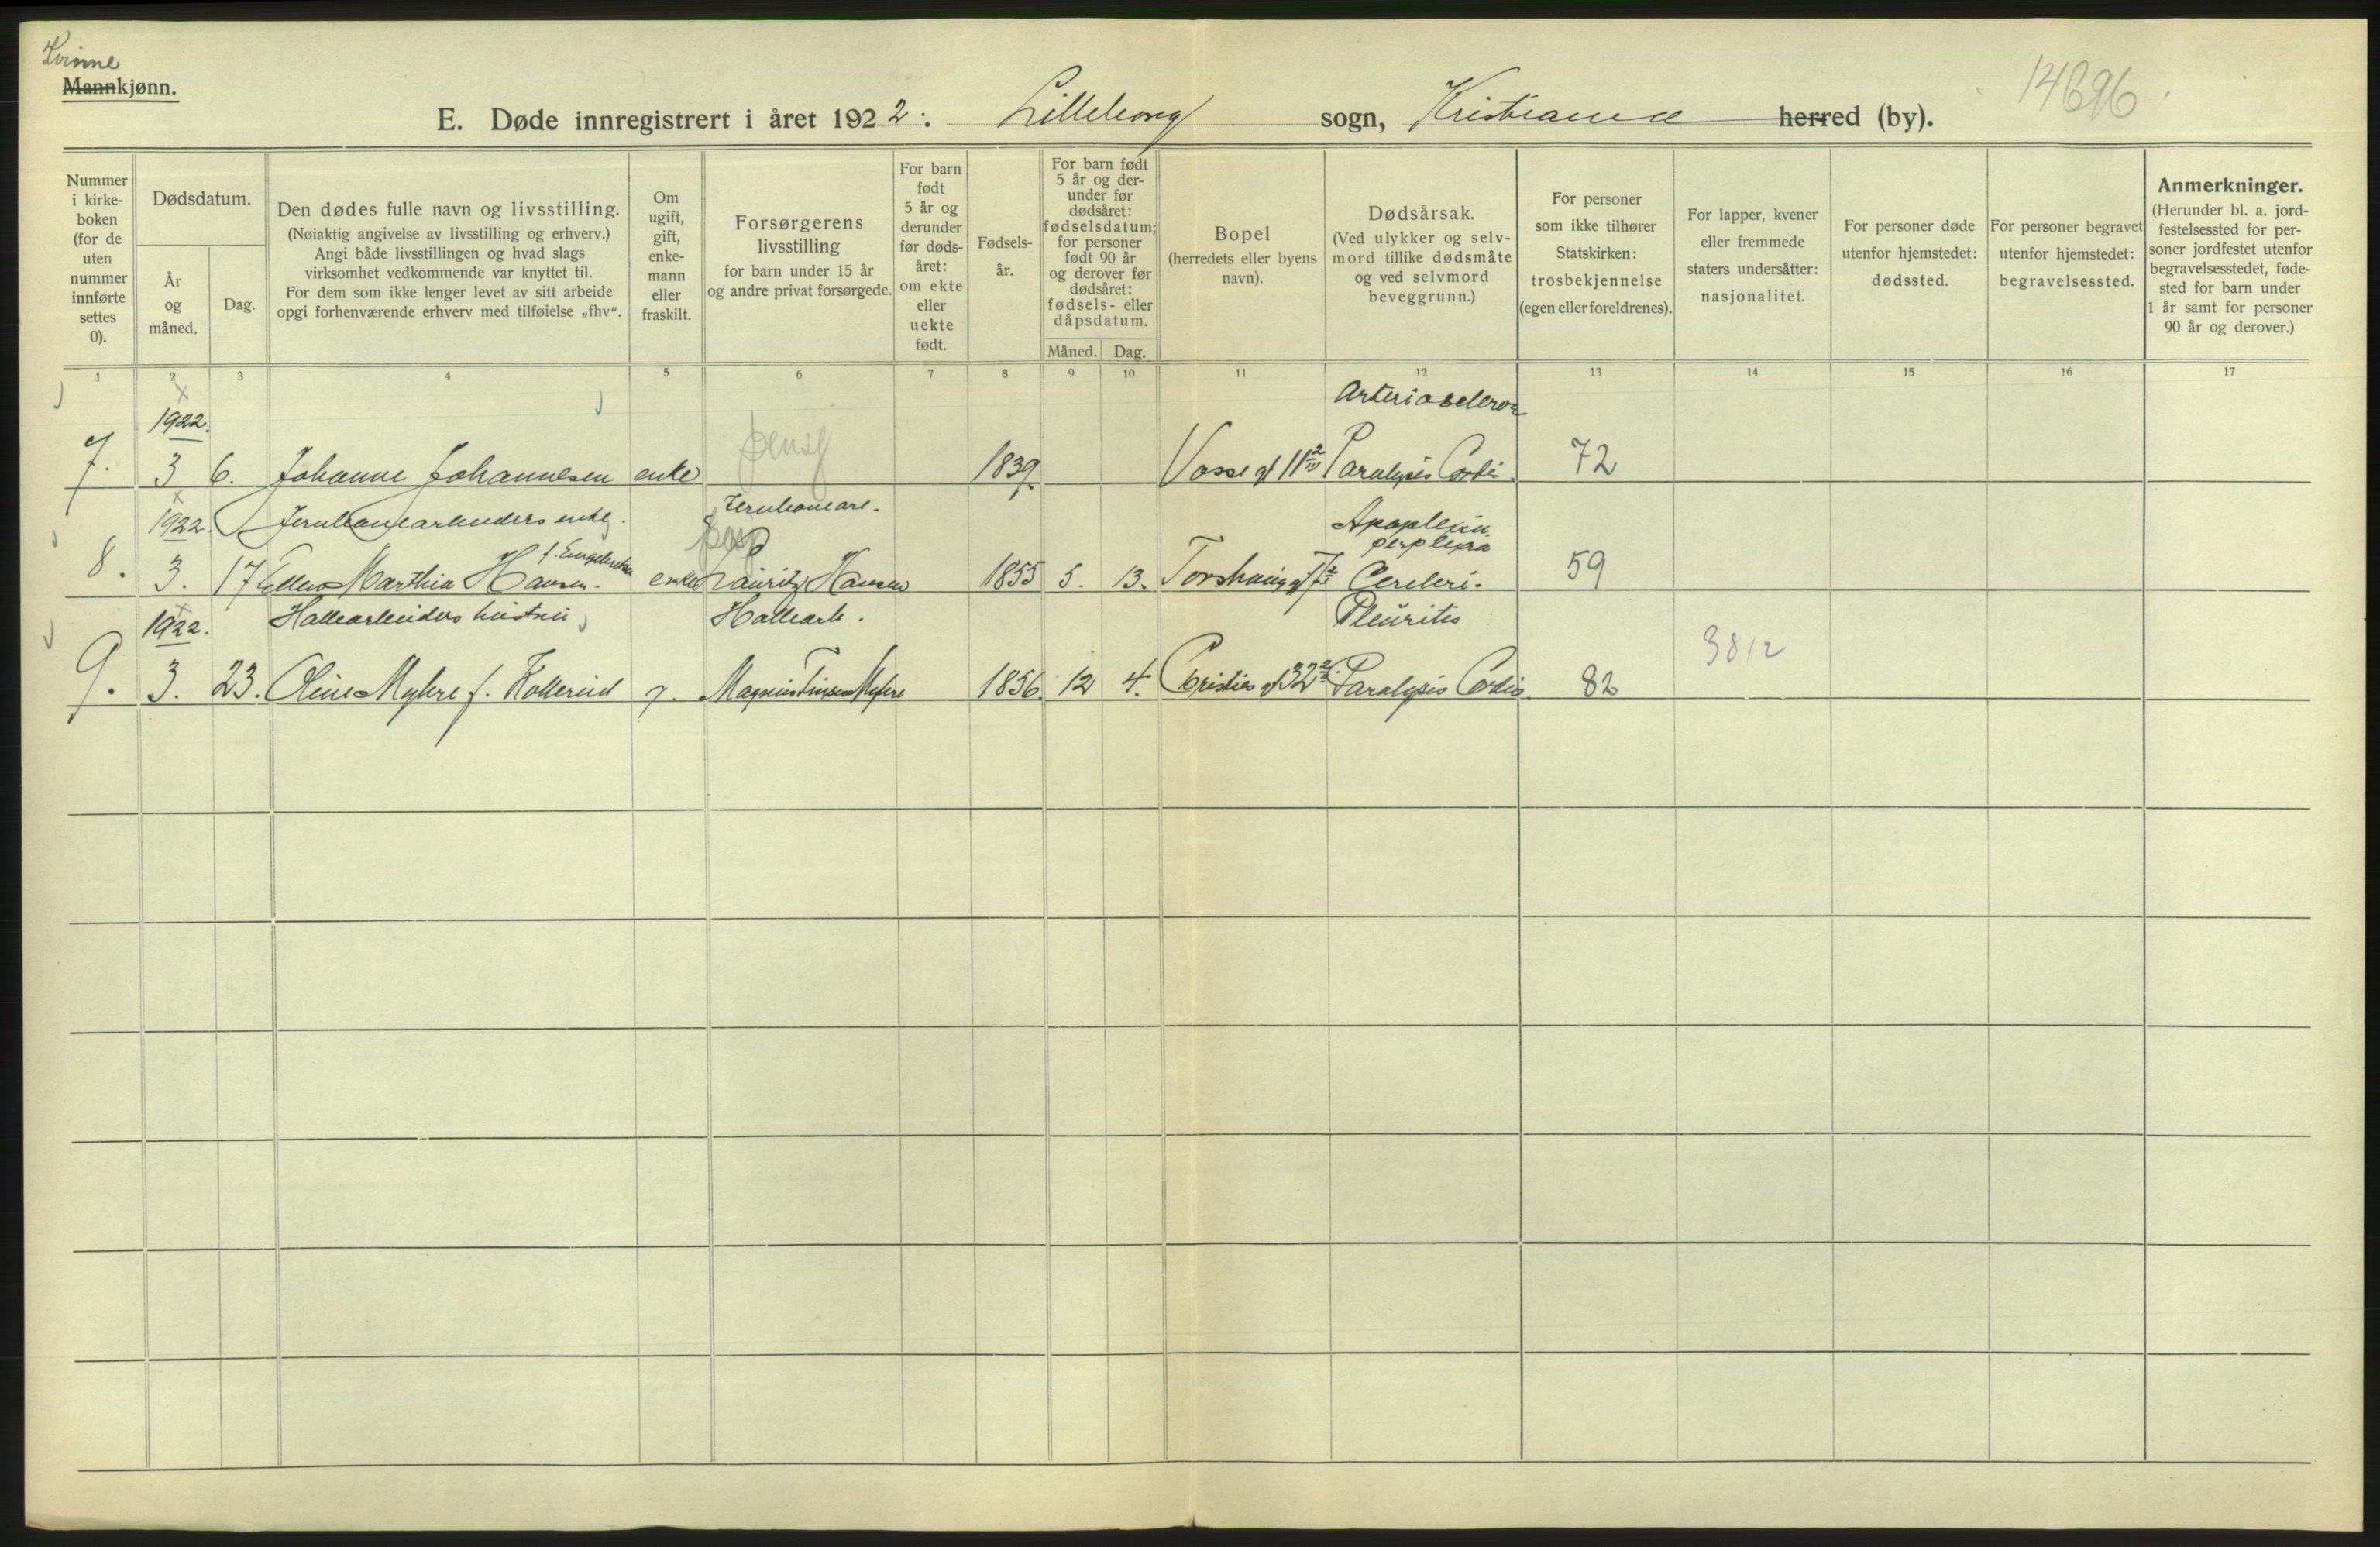 Kvinne
Mannkjønn.
14696
E. Døde innregistrert i året 1922. Lilleborg sogn, Kristiania herred (by).
Nummer i kirke-boken (for de uten nummer innførte settes 0).
Dødsdatum.
År og måned.
Dag.
Den dødes fulle navn og livsstilling.
(Nøiaktig angivelse av livsstilling og erhverv.)
Angi både livsstillingen og hvad slags
virksomhet vedkommende var knyttet til.
For dem som ikke lenger levet av sitt arbeide
opgi forhenværende erhverv med tilføielse „fhv“.
Om ugift, gift, enke-mann eller fraskilt.
Forsørgerens
livsstilling
for barn under 15 år
og andre privat forsørgede.
For barn født 5 år og derunder før døds-året: om ekte eller uekte født.
Fødsels-år.
For barn født 5 år og der-under før dødsåret: fødselsdatum; for personer født 90 år og derover før dødsåret: fødsels- eller dåpsdatum.
Måned. Dag.
Bopel
(herredets eller byens
navn).
Dødsårsak.
(Ved ulykker og selv-
mord tillike dødsmåte
og ved selvmord
beveggrunn.)
For personer
som ikke tilhører
Statskirken:
trosbekjennelse
(egen eller foreldrenes).
For lapper, kvener
eller fremmede
staters undersåtter:
nasjonalitet.
For personer døde
utenfor hjemstedet:
dødssted.
For personer begravet
utenfor hjemstedet:
begravelsessted.
Anmerkninger.
(Herunder bl. a. jord-
festelsessted for per-
soner jordfestet utenfor
begravelsesstedet, føde-
sted for barn under
1 år samt for personer
90 år og derover.)
1 2 3 4 5 6 7 8 9 10 11 12 13 14 15 16 17
1922. Arterioscleros
7. 3 6. Johanne Johannesen enke 1839. Vosse gt 11 Paralysis Cordis. 72
1922. Jernbanearbeiders enke. Jernbanearb. Apoplexia
perplexa
8. 3. 17 Ellen Marthia Hansen. f. Engebretsen enke Lauritz Hansen 1855 5. 13. Torshaug gt 7 Cerebri. 59
1922. Hallearbeiders hustru Hallearb. Pleuritis
3812
9. 3. 23. Oline Myhre f. Kollerud g. Magnus Myhre 1856 12 4. Cristies gt 32 Paralysis Cordis. 82